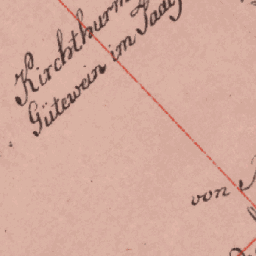 Kirchthurm
Gütewein im
von